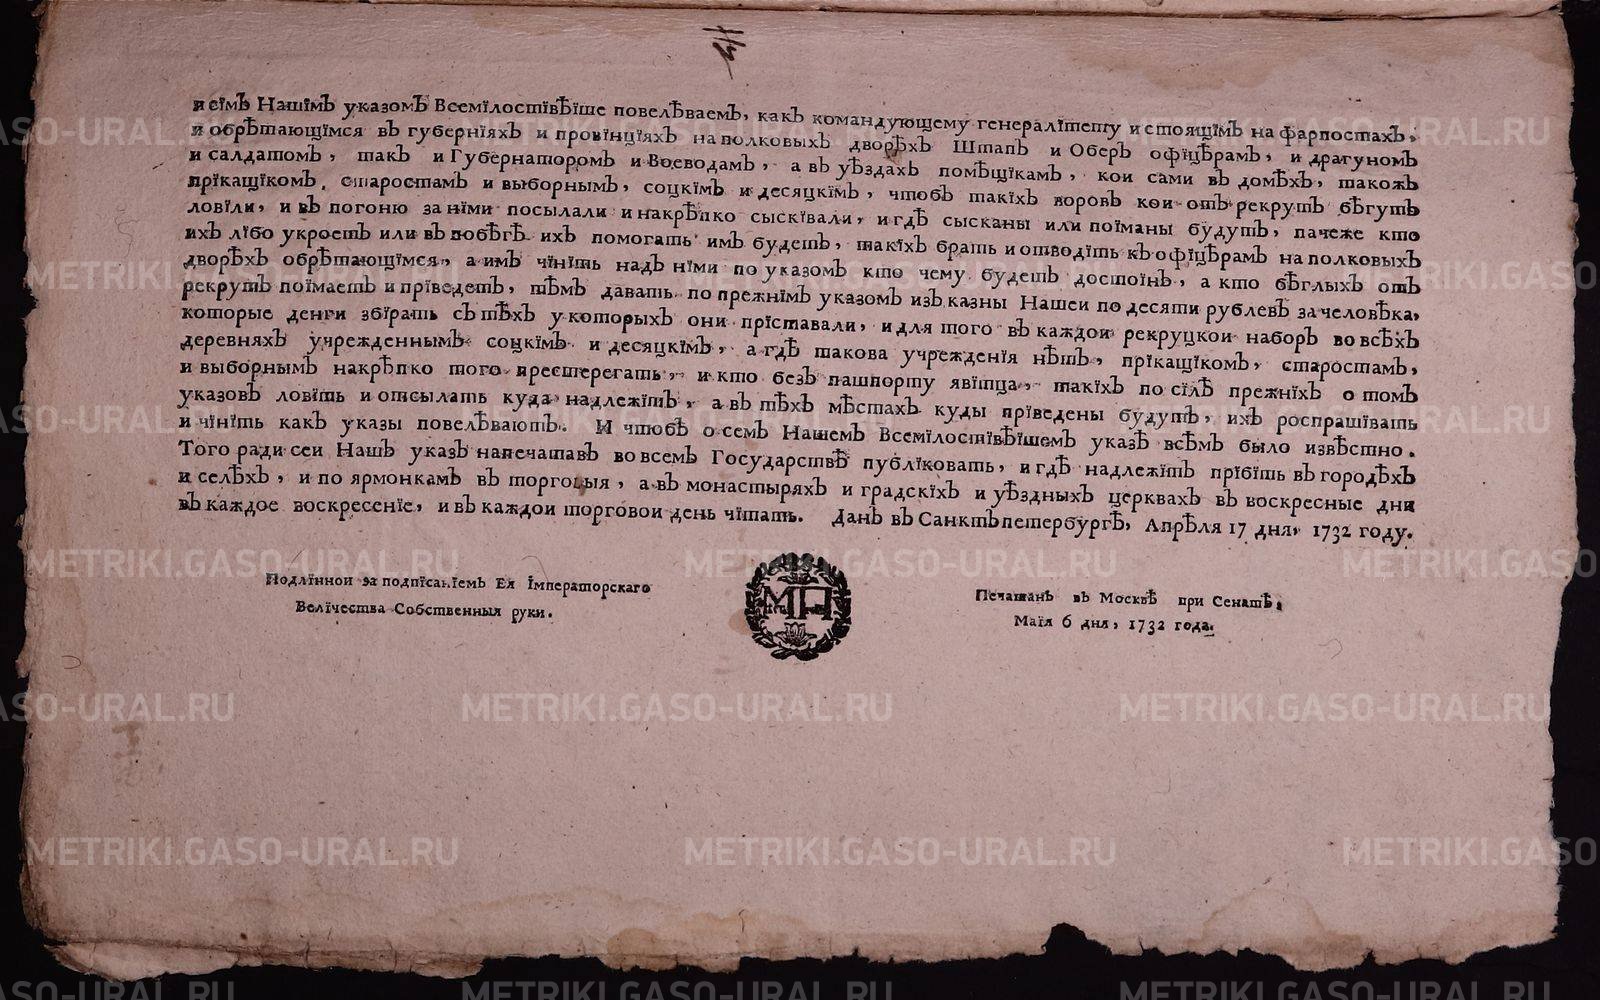 и сімъ Нашімъ указомъ Всемілостівѣіше повелѣваемъ, какъ командующему генералітету и стоящімъ на фарпостахъ,
и обрѣтающімся въ губерніяхъ и провінціяхъ на полковыхъ дворѣхъ Штапъ и Оберъ офіцѣрамъ, и драгуномъ
и салдатомъ, такъ и Губернаторомъ и Воеводамъ, а въ уѣздахъ помѣщікамъ, кои сами въ домѣхъ, такожъ
прікащікомъ, старостамъ и выборнымъ, соцкімъ и десяцкімъ, чтобъ такіхъ воровъ кои отъ рекрутъ бѣгутъ
ловіли, и въ погоню за німи посылали и накрѣпко сысківали, и гдѣ сысканы или поіманы будутъ, пачеже кто
ихъ лібо укроетъ или въ побѣгѣ ихъ помогать имъ будетъ, такіхъ брать и отводіть къ офіцѣрамъ на полковыхъ
дворѣхъ обрѣтающімся, а имъ чініть надъ німи по указомъ кто чему будетъ достоінъ, а кто бѣглыхъ отъ
рекрутъ поімаетъ и пріведетъ, тѣмъ давать по прежнімъ указомъ изъ казны Нашеи по десяти рублевъ за человѣка,
которые денги збірать съ тѣхъ у которыхъ они пріставали, и для того въ каждои рекруцкои наборъ во всѣхъ
деревняхъ учрежденнымъ соцкімъ и десяцкімъ, а гдѣ такова учрежденія нѣтъ, прікащікомъ, старостамъ,
и выборнымъ накрѣпко того престерегать, и кто безъ пашпорту явітца, такіхъ по сілѣ прежніхъ о томъ
указовъ ловіть и отсылать куда надлежітъ, а въ тѣхъ мѣстахъ куды пріведены будутъ, ихъ роспрашівать
и чініть какъ указы повелѣваютъ. И чтобъ о семъ Нашемъ Всемілостівѣішемъ указѣ всѣмъ было извѣстно.
Того ради сеи Нашъ указъ напечатавъ во всемъ Государствѣ публіковать, и гдѣ надлежітъ прібіть въ городѣхъ
и селѣхъ, и по ярмонкамъ въ торговыя, а въ монастыряхъ и градскіхъ и уѣздныхъ церквахъ въ воскресные дни
въ каждое воскресеніе, и въ каждои торговои день чітать. Данъ въ Санктъпетербургѣ, Апрѣля 17 дня, 1732 году.
Подліннои за подпісаніемъ Ея Імператорскаго
Велічества Собственныя руки.
Печатанъ въ Москвѣ при Сенатѣ,
Маія 6 дня, 1732 года.
METRIKI.GASO-URAL.RU